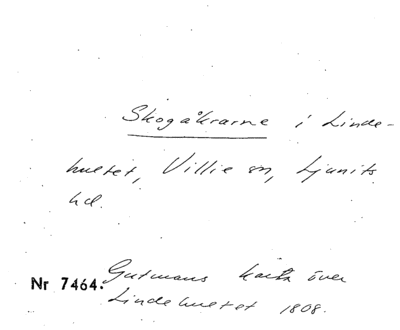 Skogåkrarne i Linde-
hultet, Villie sn, Ljunits
hd.
Nr 7464. Gutmans karta över
Lindehultet 1808.